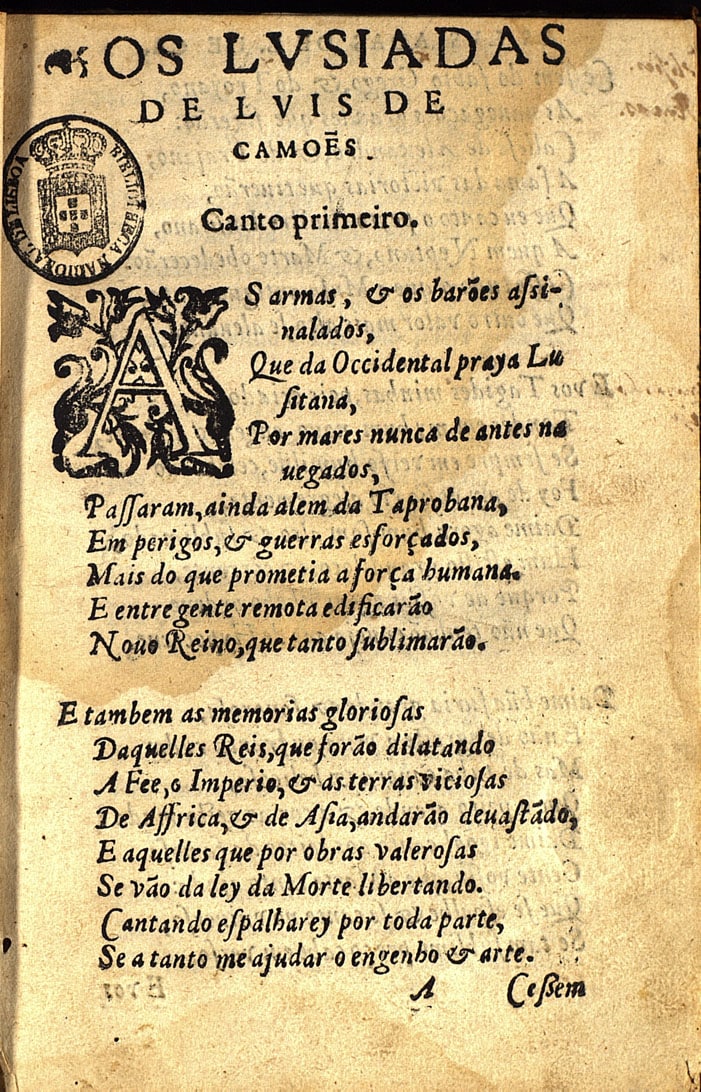 OS LVSIADAS
DE LVIS DE
CAMOẼS.
BIBLIOTHECA NACIONAL DE LISBOA
Canto primeiro.
AS armas, & os barões aſsi-
nalados,
Que da Occidental praya Lu
ſitana,
Por mares nunca de antes na
uegados,
Paſſaram, ainda alem da Taprobana,
Em perigos, & guerras esforçados,
Mais do que prometia a força humana.
E entre gente remota edificarão
Nouo Reino, que tanto ſublimarão.
E tambem as memorias glorioſas
Daquelles Reis, que forão dilatando
A Fee, o Imperio, & as terras vicioſas
De Affrica, & de Aſia, andarão deuaſtãdo,
E aquelles que por obras valeroſas
Se vão da ley da Morte libertando.
Cantando eſpalharey por toda parte,
Se a tanto me ajudar o engenho & arte.
A Ceßem